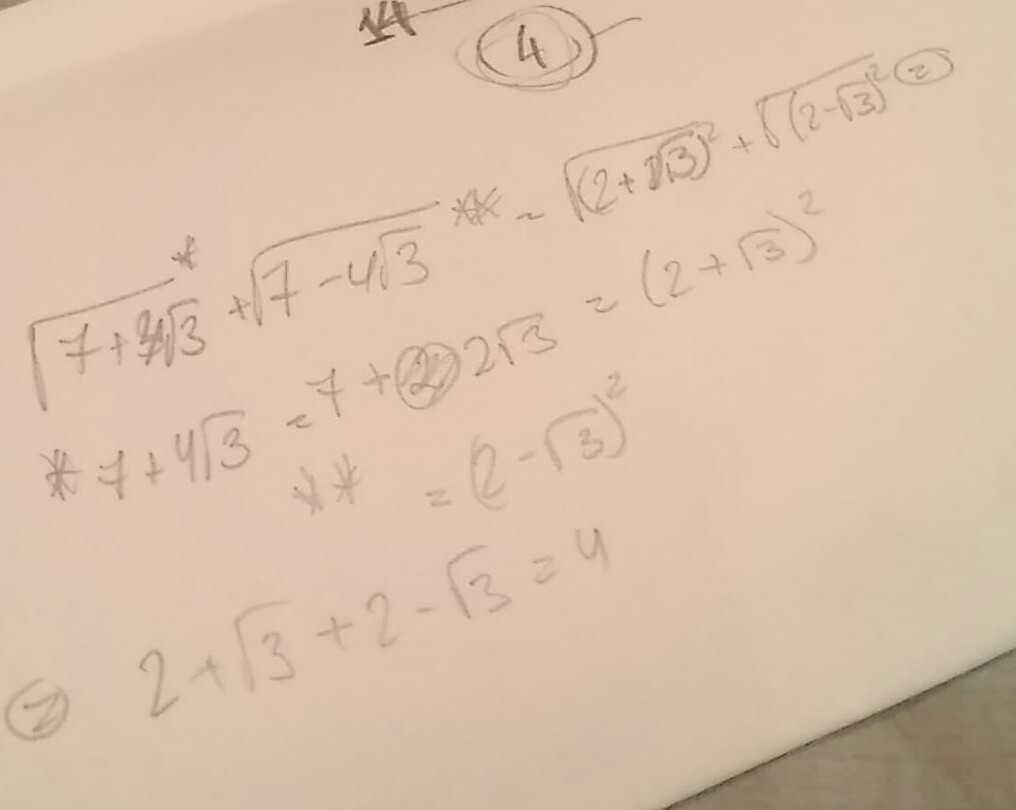 14
4
√7+4√3 * + √7-4√3 ** = √(2+√3)² + √(2-√3)² =
* 7+4√3 = 7+2 2√3 = (2+√3)²
** = (2-√3)²
= 2+√3+2-√3=4